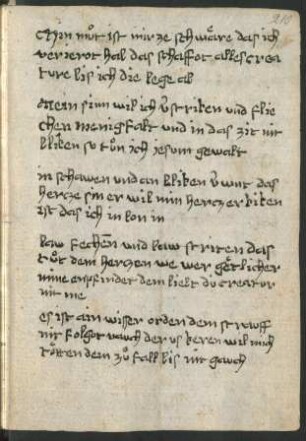 210
Min můt ist mir ze schwåre das ich
verierot hab das schaffot alles crea
ture bis ich die lege ab
Mein sinn wil ich v̈striken und flie
chen menigfalt und in das zit nit
bliken so tůn ich jesom gewalt
in schawen und an bliken v̈wnt das
hercze sin er wil min hercz erkiken
ist das ich in lon in
law fechen und law striten das
tůt dem herczen we wer götlicher
mine enpfindet dem liebt du creator
nit me
es ist ain wisser orden dem
nit folgot nach der us keren wil mich
tötten dem zů fall bis nit gach